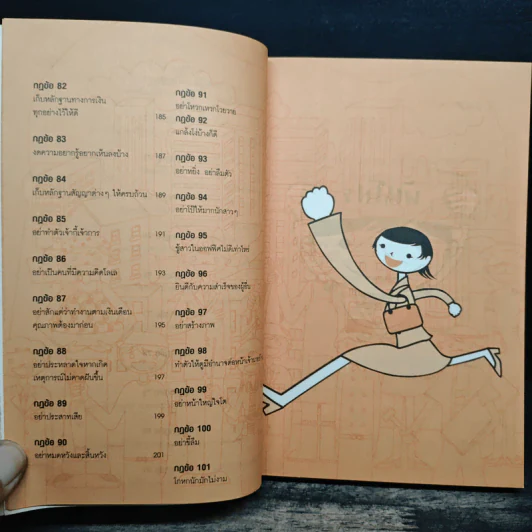 กฎข้อ 82
เก็บหลักฐานทางการเงิน
ทุกอย่างไว้ให้ดี 185
กฎข้อ 83
ลดความอยากรู้อยากเห็นลงบ้าง 187
กฎข้อ 84
เก็บหลักฐานสัญญาต่างๆ ให้ครบถ้วน 189
กฎข้อ 85
อย่าทำตัวเจ้ากี้เจ้าการ 191
กฎข้อ 86
อย่าเป็นคนที่มีความคิดโลเล 193
กฎข้อ 87
อย่าสักแต่ว่าทำงานตามเงินเดือน
คุณภาพต้องมาก่อน 195
กฎข้อ 88
อย่าประหลาดใจหากเกิด
เหตุการณ์ไม่คาดฝันขึ้น 197
กฎข้อ 89
อย่าประสาทเสีย 199
กฎข้อ 90
อย่าหมดหวังและสิ้นหวัง 201
กฎข้อ 91
อย่าโหวกเหวกโวยวาย
กฎข้อ 92
แกล้งโง่บ้างก็ดี
กฎข้อ 93
อย่าหยิ่ง อย่าลืมตัว
กฎข้อ 94
อย่าโป๊ให้มากนักสาวๆ
กฎข้อ 95
ชู้สาวในออฟฟิศไม่ดีเท่าไหร่
กฎข้อ 96
ยินดีกับความสำเร็จของผู้อื่น
กฎข้อ 97
อย่าสร้างภาพ
กฎข้อ 98
ทำตัวให้ดูมีอำนาจต่อหน้าเจ้านาย
กฎข้อ 99
อย่าหน้าใหญ่ใจโต
กฎข้อ 100
อย่าขี้ลืม
กฎข้อ 101
โกหกนักมักไม่งาม